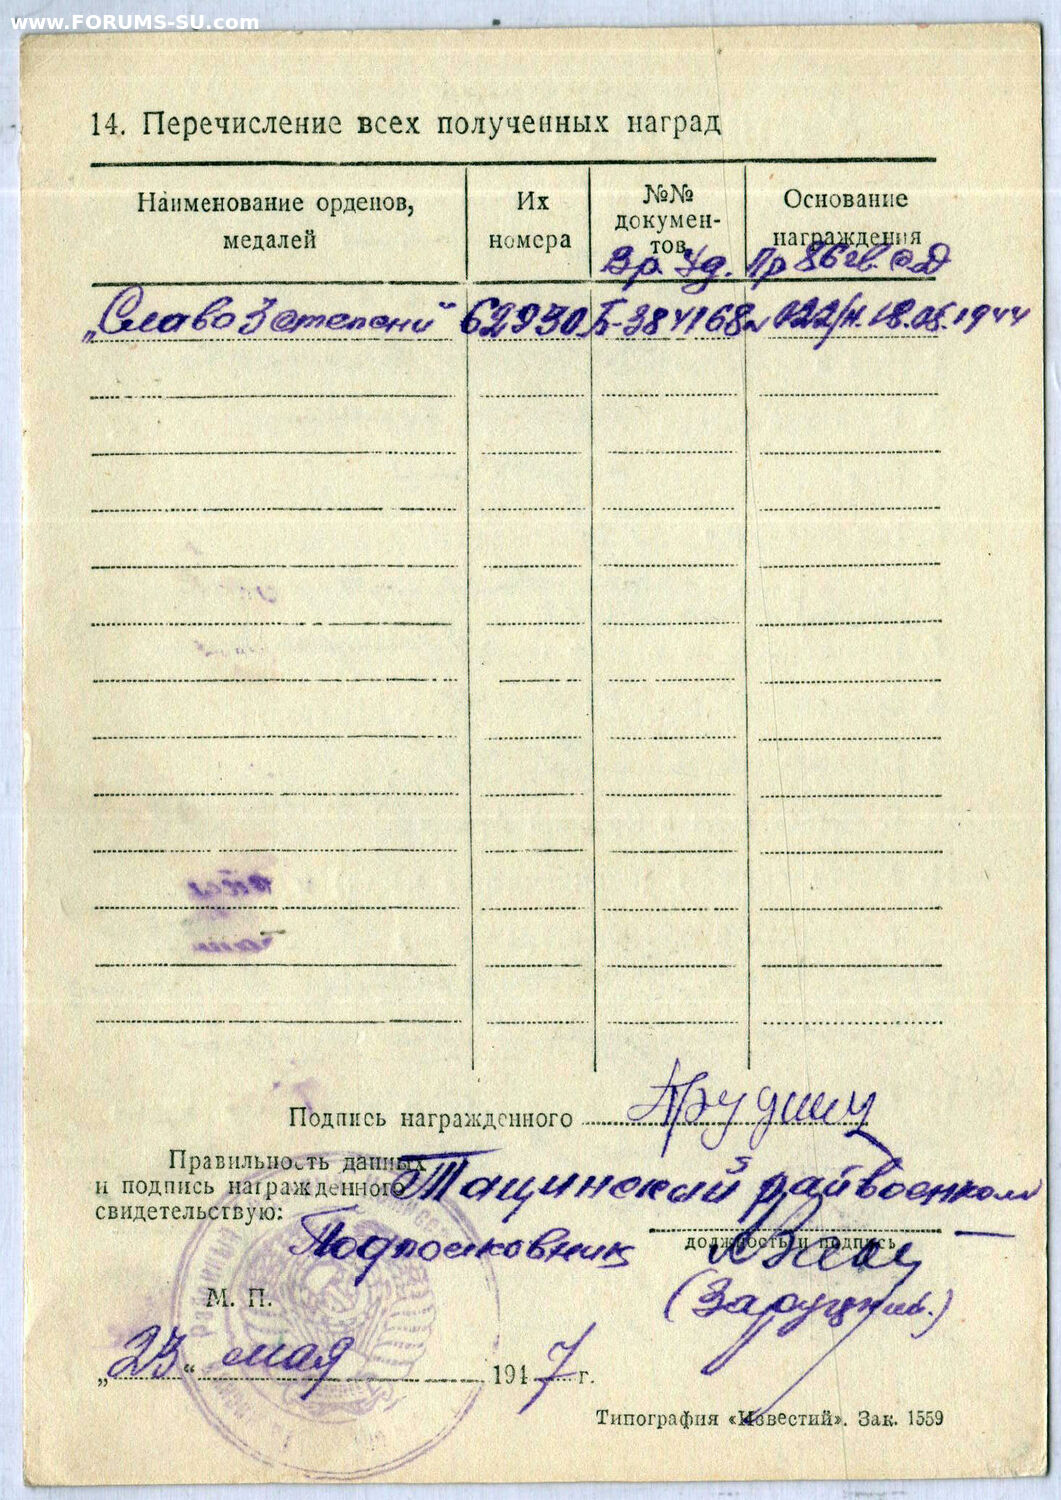 www.FORUMS-SU.com
14. Перечисление всех полученных наград
Наименование орденов, медалей
Их номера
№№ документов
Основание награждения
Вр. Уд. Пр 86 гв. сд
„Слава 3 степени" 62930 Б-384168 № 022/н. 18.05.1944
Подпись награжденного
Правильность данных
и подпись награжденного Тацинский райвоенком
свидетельствую:
Подполковник
должность и подпись
М. П.
„23“ мая 1947 г.
Типография «Известий». Зак. 1559